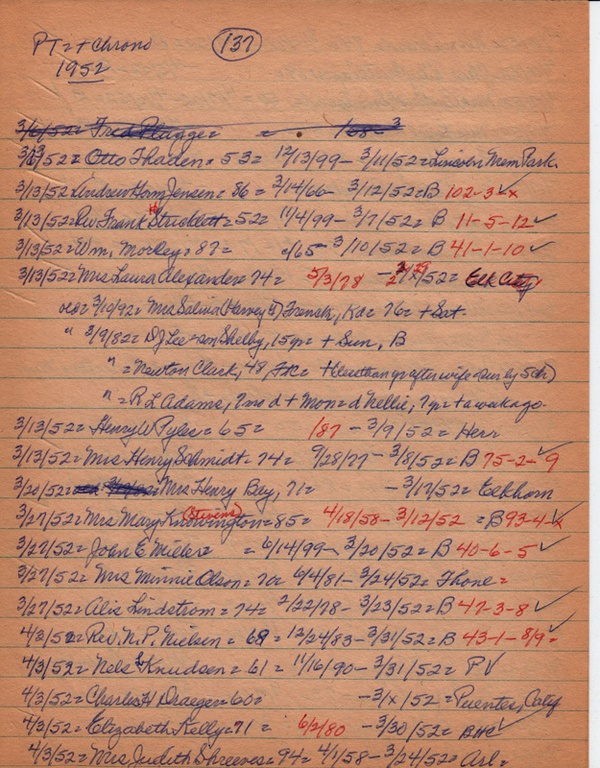 PT2 + Chrono (137)
1952
3/6/52 = Fred Plugge = 3
3/13/52 = Otto Thaden = 53 = 12/13/99 - 3/11/52 = Lincoln Mem Park.
3/13/52 = Andrew Horn Jensen = 86 = 3/14/66 - 3/12/52 = B 102-3-x
3/13/52 = Rev Frank H Stricklett = 52 = 11/4/99 - 3/7/52 = B 11-5-12 ✓
3/13/52 = Wm. Morley = 87 = c/65 - 3/10/52 = B 41-1-10 ✓
3/13/52 = Mrs Laura Alexander = 74 = 5/3/78 - 2/29/52 = Elk City
3/10/92 = Mrs Salina (Harvey B) French, Kd = 76 = + Sat.
" 3/9/82 = DJ Lee = son Shelby, 15 yr = + Sun, B
" = Newton Clark, 48, = + (less than yr after wife = sur by 5 ch)
" = R L Adams, 7 mo d + Mon = d Nellie, 7 yr = + a week ago.
3/13/52 = Henry W Pyles = 65 = /87 - 3/9/52 = Herr
3/13/52 = Mrs Henry Schmidt = 74 = 9/28/77 - 3/8/52 = B 75-2-9
3/20/52 = Mrs Henry Bey, 71 = - 3/17/52 = Eelkhorn
3/27/52 = Mrs Mary (Stevens) Knowington = 85 = 4/18/58 - 3/12/52 = B 93-4-x
3/27/52 = John E Miller = 6/14/99 - 3/20/52 = B 40-6-5 ✓
3/27/52 = Mrs Minnie Olson = 70 = 6/4/81 - 3/24/52 = Thone =
3/27/52 = Alis Lindstrom = 74 = 2/22/78 - 3/23/52 = B 47-3-8 ✓
4/3/52 = Rev. N. P. Nielsen = 68 = 12/24/83 - 3/31/52 = B 43-1-8/9 =
4/3/52 = Nels Knudsen = 61 = 11/16/90 - 3/31/52 = PV
4/3/52 = Charles H Draeger = 60 = - 3/x/52 = Puentes, Calif
4/3/52 = Elizabeth Kelly = 71 = 6/2/80 - 3/30/52 = BHC ✓
4/3/52 = Mrs Judith Shreeves = 94 = 4/1/58 - 3/24/52 = Arl =